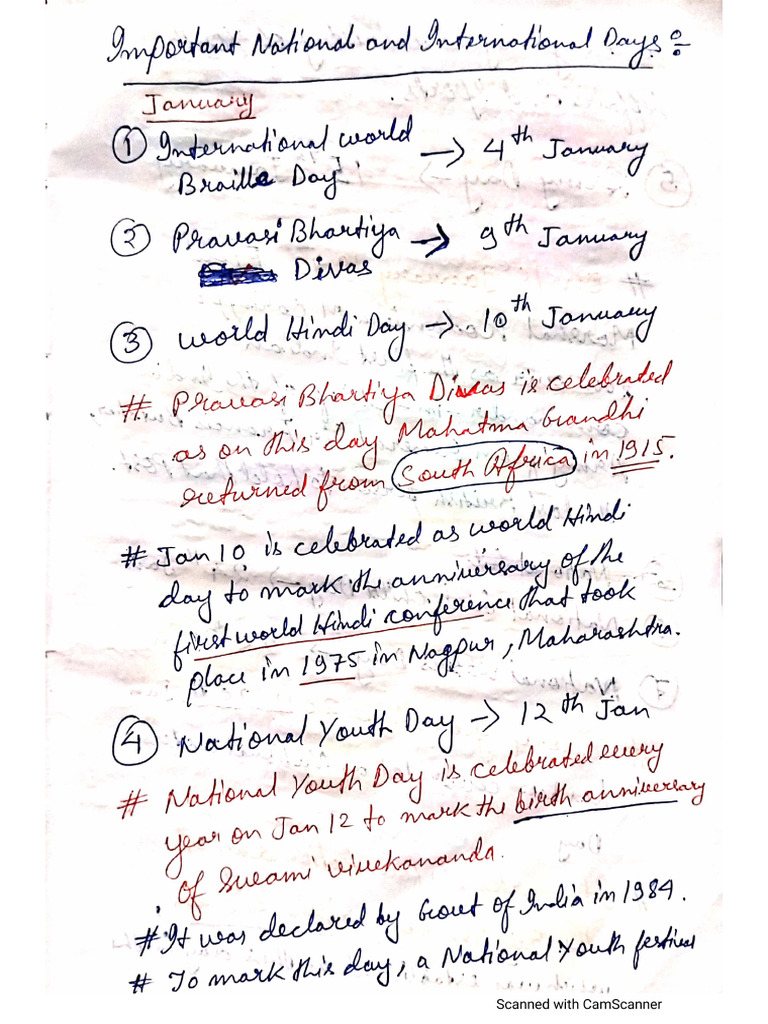 Important National and International Days :-
January
① International world
Braille Day → 4th January
② Pravasi Bhartiya
Divas → 9th January
③ World Hindi Day → 10th January
# Pravasi Bhartiya Divas is celebrated
as on this day Mahatma Gandhi
returned from South Africa in 1915.
# Jan 10 is celebrated as world Hindi
day to mark the anniversary of the
first world Hindi conference that took
place in 1975 in Nagpur, Maharashtra.
④ National Youth Day → 12th Jan
# National Youth Day is celebrated every
year on Jan 12 to mark the birth anniversary
of Swami vivekananda.
# It was declared by Govt of India in 1984.
# To mark this day, a National Youth festival
Scanned with CamScanner